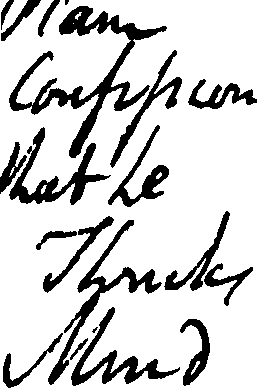 Confession
that he
Thinks
Mind